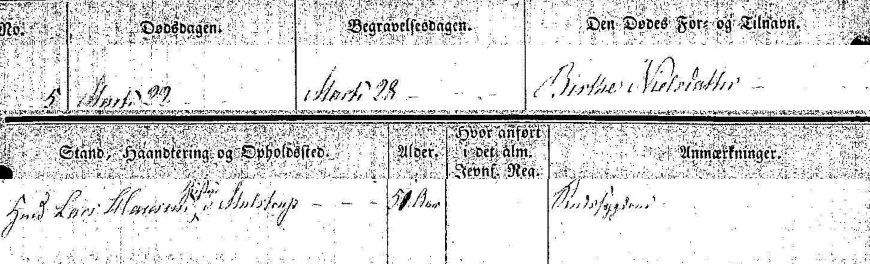 No. Dødsdagen. Begravelsesdagen. Den Dødes For- og Tilnavn.
5 Marts 22 — Marts 28 — Birthe Nielsdatter —
Stand, Haandtering og Opholdssted. Alder. Hvor anført i det alm. Jevnf. Reg. Anmærkninger.
Huus Lars i — — — 50 Aar